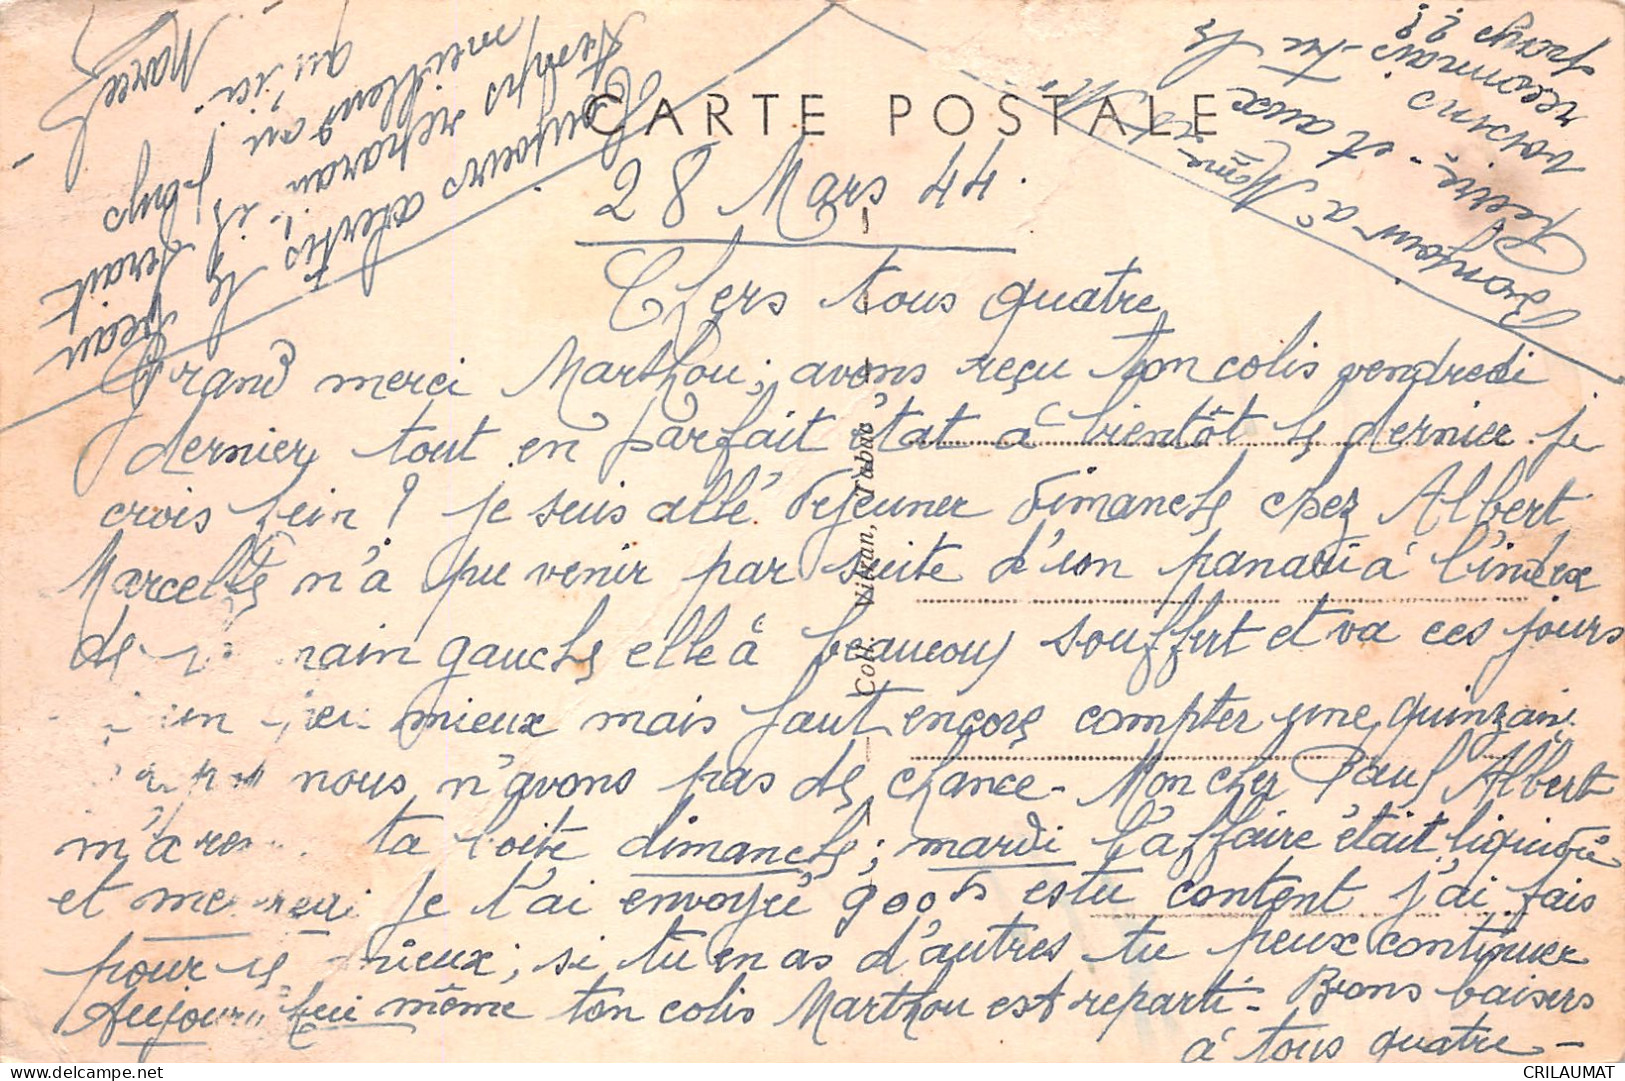 CARTE POSTALE
28 Mars 44.
Chers tous quatre
Grand merci Marthou; avons reçu ton colis vendredi
dernier, tout en parfait état à bientôt le dernier je
crois hein? Je suis allé déjeuner dimanche chez Albert
Marcelle n'a pu venir par suite d'un panari à l'index
de main gauche elle à beaucoup souffert et va ces jours
un peu mieux mais faut encore compter une quinzaine
nous n'avons pas de chance - Mon cher Paul Albert
m'a ta boite dimanche; mardi l'affaire était liquidée
et mercredi je t'ai envoyé 900 es tu content j'ai fais
pour le mieux; si tu en as d'autres tu peux continuer
Aujourd'hui même ton colis Marthou est reparti - Bons baisers
à tous quatre -
Toujours alertis, le
temps réparau il serait
meilleur au pays
qu'ici
Marcel
Bonjour à Mémé
Reine - et aux
voisins
reconnais-tu le
pays ??
Coll. Vigean, Tabac
CRILAUMAT